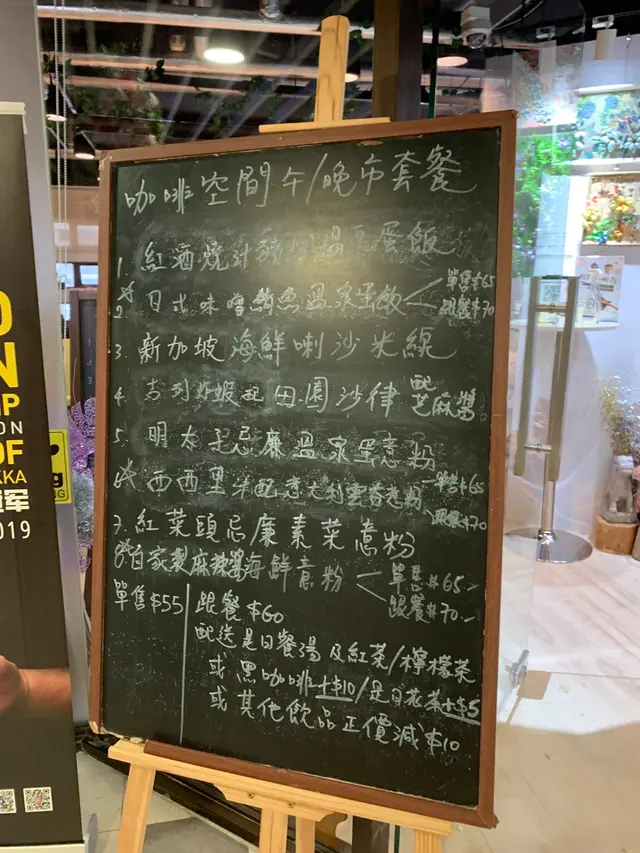 咖啡空間午/晚市套餐
1. 紅酒燒汁豬 溫泉蛋飯
*2. 日式味噌鮪魚溫泉蛋飯 單售$65 跟餐$70
3. 新加坡海鮮喇沙米線
4. 吉列炸蝦配田園沙律 配芝麻醬
5. 明太子忌廉溫泉蛋意粉
西西里 配意大利雲吞意粉 單售$65 跟餐$70
7. 紅菜頭忌廉素菜意粉
自家製麻辣醬海鮮意粉 單售$65.- 跟餐$70.-
單售$55 跟餐$60
配送是日餐湯及紅茶/檸檬茶
或黑咖啡+$10/是日花茶+$5
或其他飲品正價減$10
N
ON
OF
KKA
2019
NG